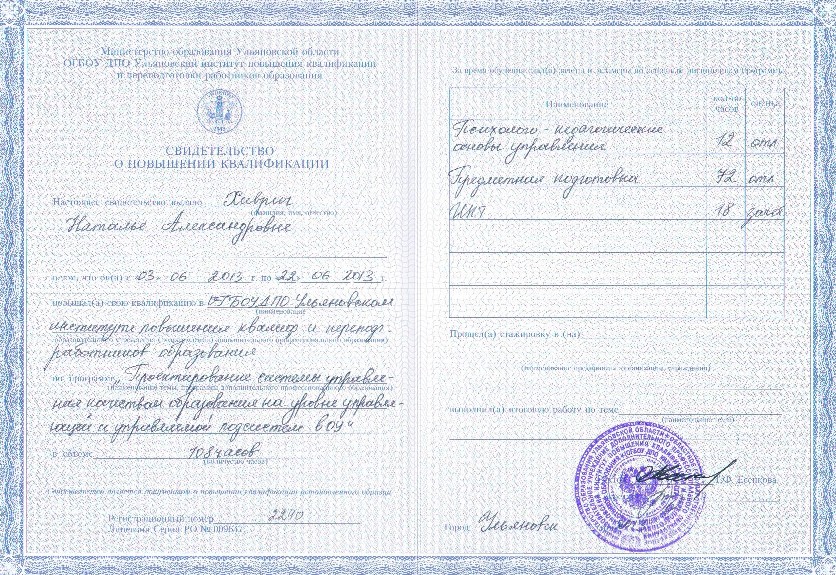 Министерство образования Ульяновской области
ОГБОУ ДПО Ульяновский институт повышения квалификации
и переподготовки работников образования
СВИДЕТЕЛЬСТВО
О ПОВЫШЕНИИ КВАЛИФИКАЦИИ
Настоящее свидетельство выдано Хиврич
(фамилия, имя, отчество)
Наталье Александровне
в том, что он(а) с «03» 06 2013 г. по «22» 06 2013 г.
повысил(а) свою квалификацию в ОГБОУ ДПО Ульяновском
(наименование
институте повышения квалиф и перепод.
образовательного учреждения (подразделения) дополнительного профессионального образования)
работников образования
по программе „Проектирование системы управле-
(наименование темы, программы дополнительного профессионального образования)
ния качеством образования на уровне управля-
ющей и управляемой подсистем в ОУ"
в объеме 108 часов
(количество часов)
Свидетельство является документом о повышении квалификации установленного образца
Регистрационный номер 2290
Серия РО №
За время обучения сдал(а) зачеты и экзамены по основным дисциплинам программы:
Наименование
кол-во часов
оценка
Психолого-педагогические основы управления 12 отл
Предметная подготовка 72 отл
ИКТ 18 зачет
Прошел(а) стажировку в (на)
(наименование предприятия, организации, учреждения)
выполнил(а) итоговую работу по теме
(наименование темы)
Город Ульяновск